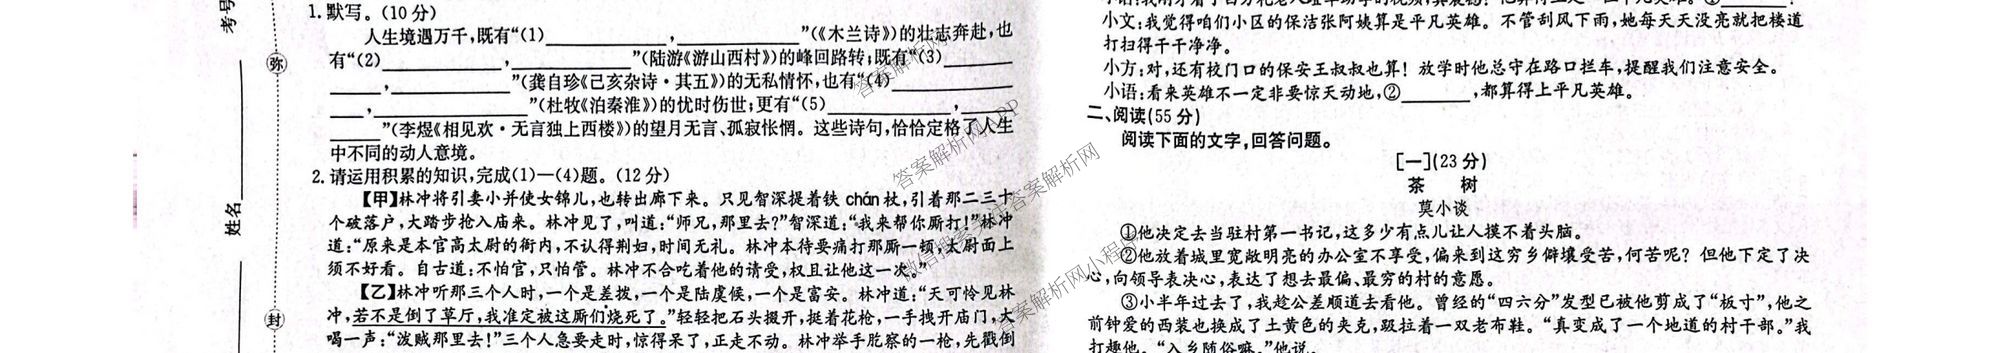 考号
弥
姓名
封
1.默写。(10分)
人生境遇万千,既有“(1)____________,____________”(《木兰诗》)的壮志奔赴,也
有“(2)____________,____________”(陆游《游山西村》)的峰回路转;既有“(3)______
____,____________”(龚自珍《己亥杂诗·其五》)的无私情怀,也有“(4)____________
____,____________”(杜牧《泊秦淮》)的忧时伤世;更有“(5)____________,____
______”(李煜《相见欢·无言独上西楼》)的望月无言、孤寂怅惘。这些诗句,恰恰定格了人生
中不同的动人意境。
2.请运用积累的知识,完成(1)—(4)题。(12分)
【甲】林冲将引妻小并使女锦儿,也转出廊下来。只见智深提着铁chán杖,引着那二三十
个破落户,大踏步抢入庙来。林冲见了,叫道:“师兄,那里去?”智深道:“我来帮你厮打!”林冲
道:“原来是本官高太尉的衙内,不认得荆妇,时间无礼。林冲本待要痛打那厮一顿,太尉面上
须不好看。自古道:不怕官,只怕管。林冲不合吃着他的请受,权且让他这一次。”
【乙】林冲听那三个人时,一个是差拨,一个是陆虞候,一个是富安。林冲道:“天可怜见林
冲,若不是倒了草厅,我准定被这厮们烧死了。”轻轻把石头掇开,挺着花枪,一手拽开庙门,大
喝一声:“泼贼那里去!”三个人急要走时,惊得呆了,正走不动。林冲举手肐察的一枪,先戳倒
小文:我觉得咱们小区的保洁张阿姨算是平凡英雄。不管刮风下雨,她每天天没亮就把楼道
打扫得干干净净。
小方:对,还有校门口的保安王叔叔也算!放学时他总守在路口拦车,提醒我们注意安全。
小语:看来英雄不一定非要惊天动地,②________,都算得上平凡英雄。
二、阅读(55分)
阅读下面的文字,回答问题。
[一](23分)
茶 树
莫小谈
①他决定去当驻村第一书记,这多少有点儿让人摸不着头脑。
②他放着城里宽敞明亮的办公室不享受,偏来到这穷乡僻壤受苦,何苦呢?但他下定了决
心,向领导表决心,表达了想去最偏、最穷的村的意愿。
③小半年过去了,我趁公差顺道去看他。曾经的“四六分”发型已被他剪成了“板寸”,他之
前钟爱的西装也换成了土黄色的夹克,趿拉着一双老布鞋。“真变成了一个地道的村干部。”我
打趣他。“入乡随俗嘛。”他说。
答案解析网